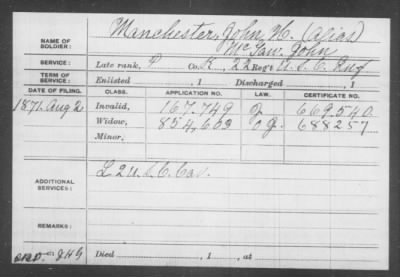 NAME OF SOLDIER: Manchester, John H. (alias)
John
SERVICE: Late rank, P Co. K, 22 Reg't U. S. C. Inf
TERM OF SERVICE: Enlisted , 1 Discharged , 1
DATE OF FILING. CLASS. APPLICATION NO. LAW. CERTIFICATE NO.
1871. Aug 2 Invalid, 167.749 669.540
Widow, 854,603 688257
Minor,
ADDITIONAL SERVICES: L 2 U.S.C. Cav.
REMARKS:
Died , 1 , at